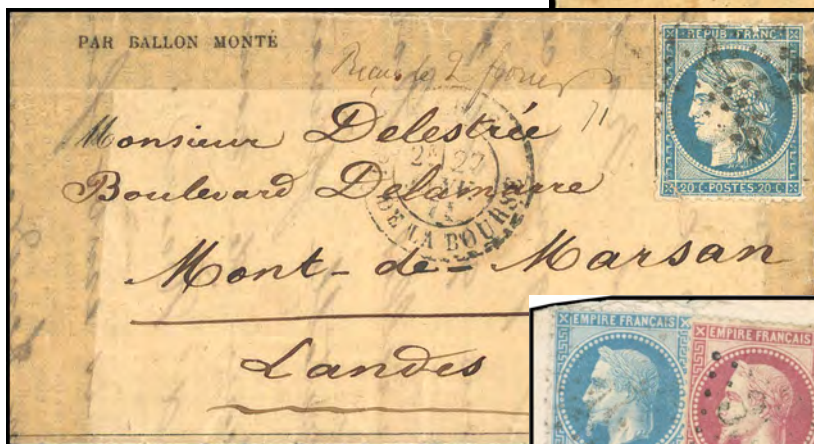 PAR BALLON MONTÉ
Reçu le 2 février 71
REPUB. FRANC.
20 C. POSTES 20 C.
Monsieur Delestrée
Boulevard Delamarre
27
DE LA BOURSE
Mont-de-Marsan
Landes
EMPIRE FRANÇAIS
EMPIRE FRANÇAIS